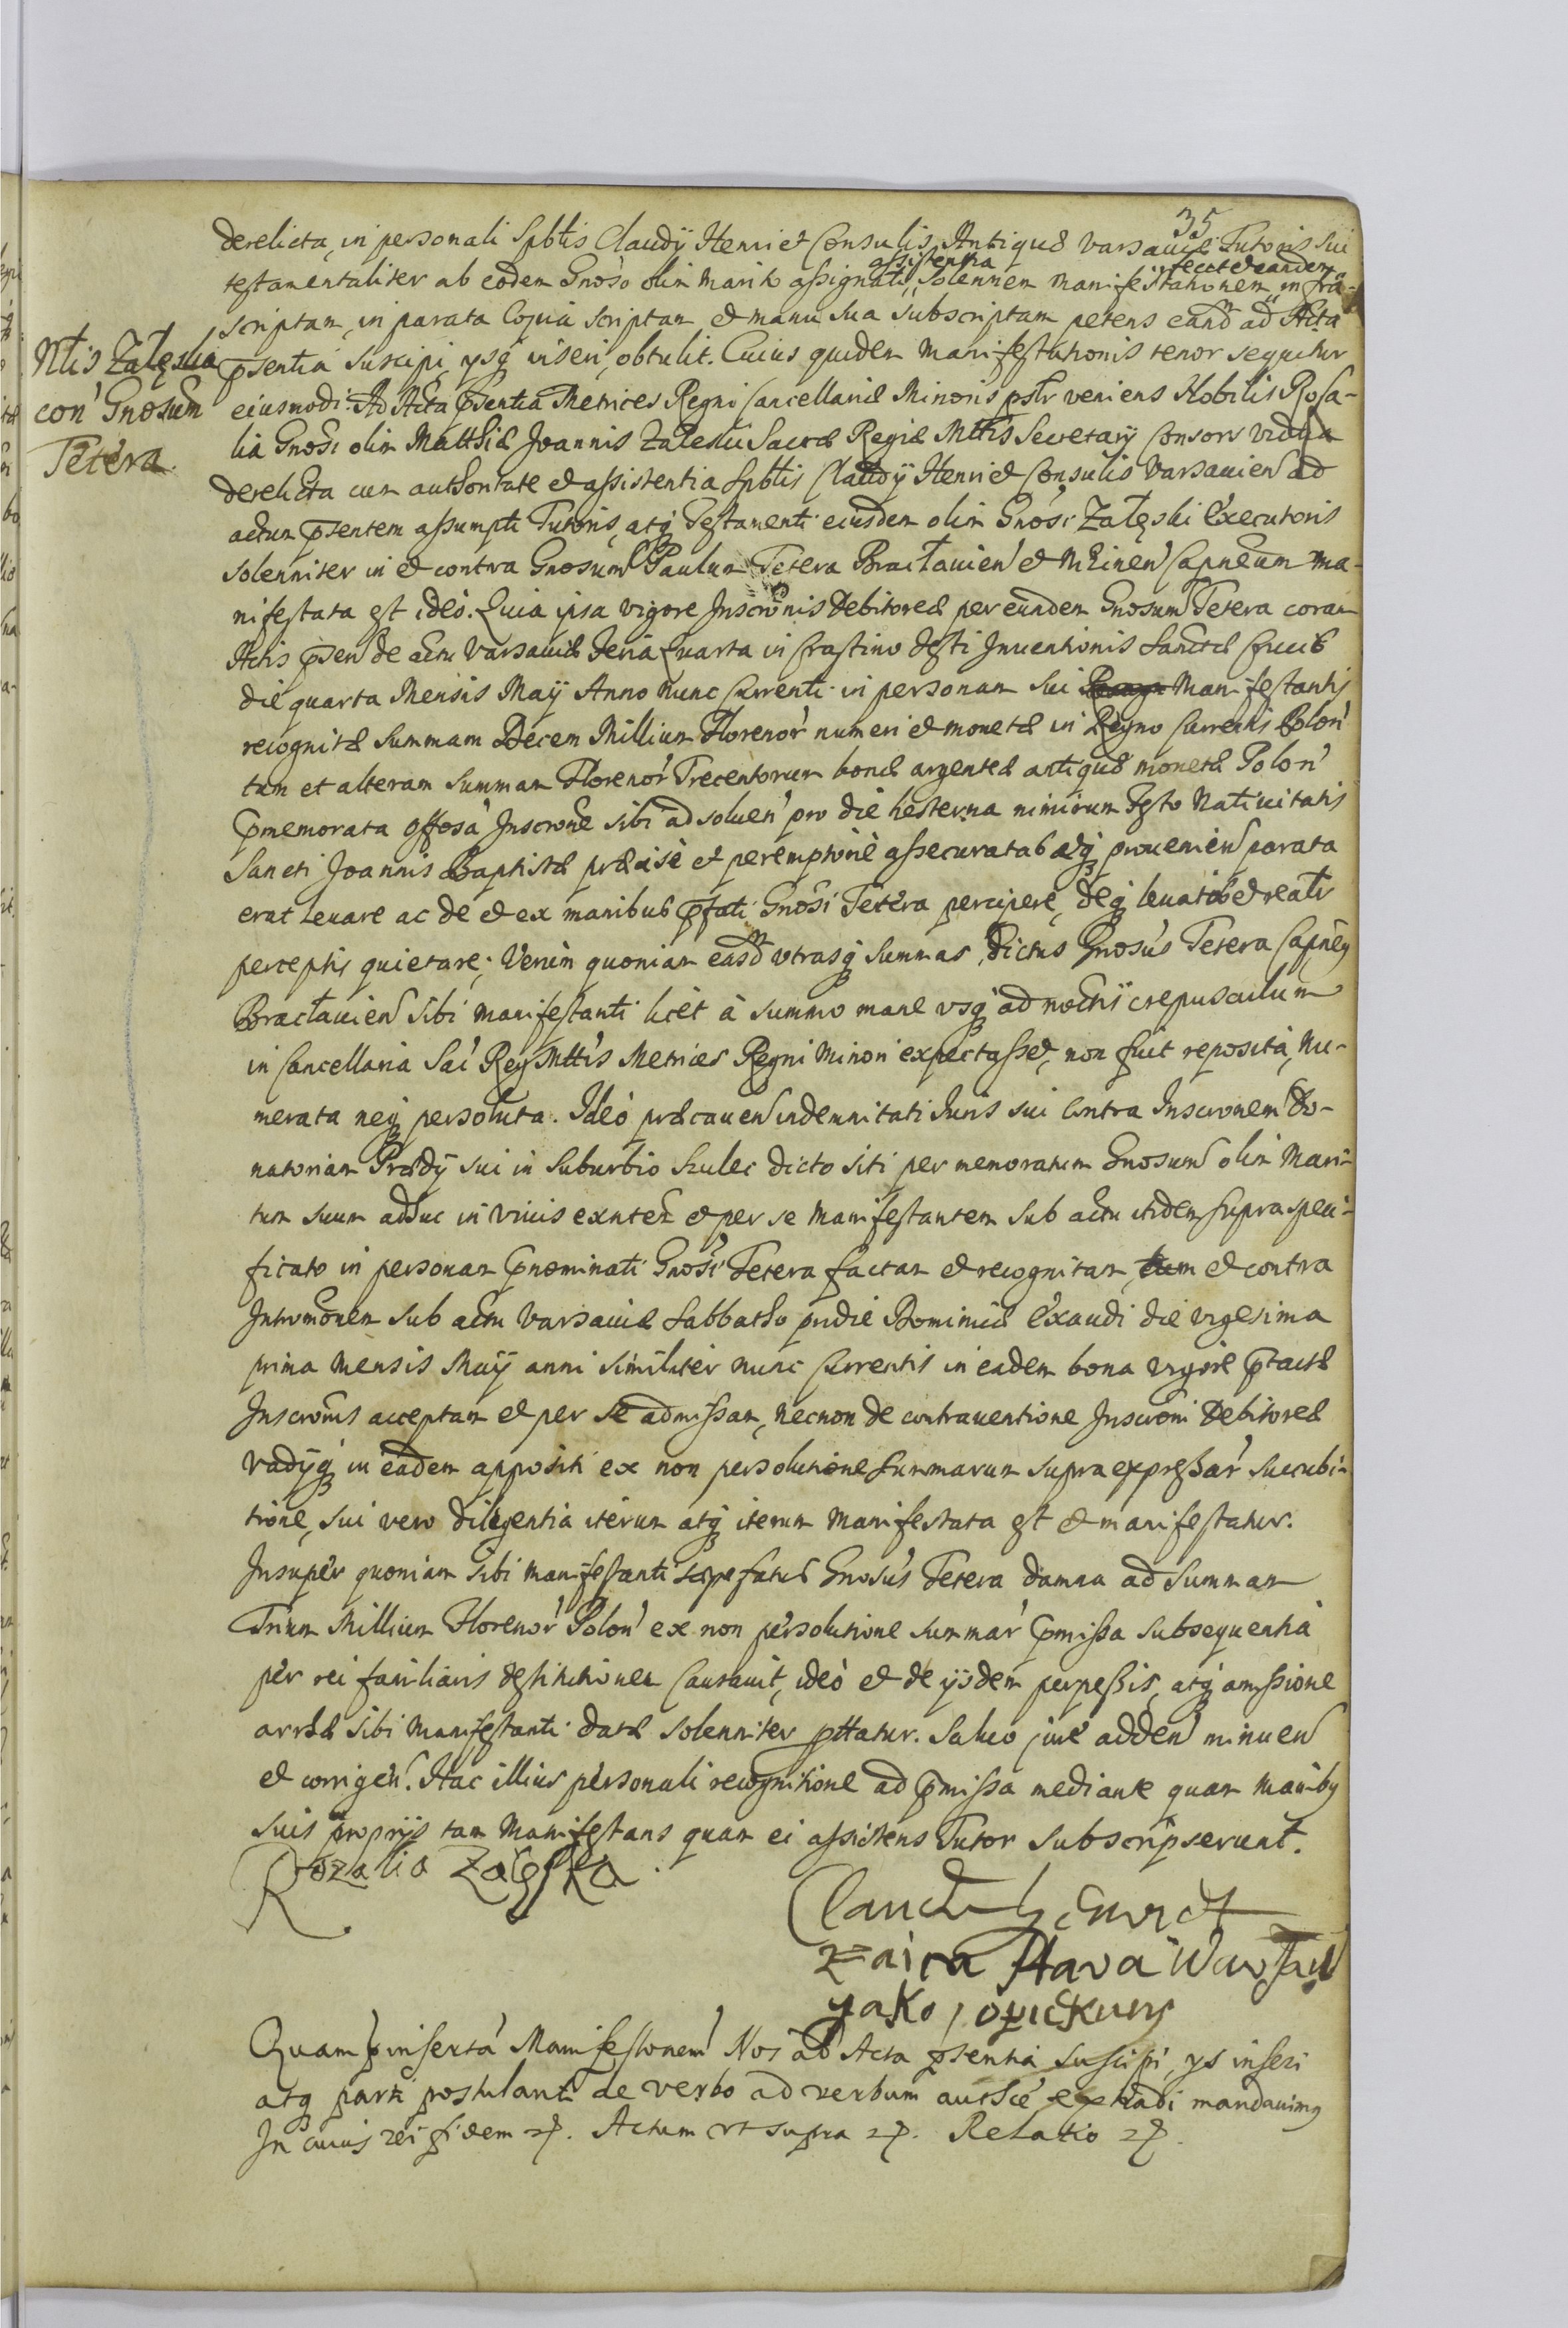 35
derelicta, in personali Spblis Claudÿ Henriet Consulis Antiquæ Varsaviæ Tutoris sui
testamentaliter ab eodem Gnoso olim marito assignati, assistentia solennem manifestationem fecit et eandem infra-
scriptam, in parata Copia scriptam et manu sua subscriptam petens eand ad Acta
Ntis Zaleska
con Gnosum
Tetera.
pñsentia suscipi, ysq inseri, obtulit. Cuius quidem manifestationis tenor sequitur
eiusmodi: Ad Acta pñsentia Metrices Regni Cancellariæ Minoris pslr veniens Nobilis Rosa-
lia Gnosi olim Matthiæ Joannis Zaleski Sacræ Regiæ Mttis Secretarÿ Consors vidua
derelicta cum authoritate et assistentia Spblis Claudÿ Henriet Consulis Varsavien ad
actum pñsentem assumpti Tutoris, atq Testamenti eiusdem olim Gnosi Zaleski Executoris
solenniter in et contra Gnosum Paulum Tetera Bractavien et Nizinen Capneum ma-
nifestata est ideo. Quia ipsa vigore Inscronis Debitoreæ per eundem Gnosum Tetera coram
Actis pñsen de actu Varsaviæ feria quarta in Crastino festi Inventionis Sanctæ Crucis
die quarta Mensis Maÿ Anno nunc Currenti in personam sui Manifestantis
recognitæ summam Decem Millium Florenor numeri et monetæ in Regno Currentis Polon
tum et alteram summam Florenor Trecentorum bonæ argenteæ antiquæ monetæ Polon
pmemorata offosa Inscrone sibi ad solven pro die hesterna nimirum festo Nativitatis
Sancti Joannis Baptistæ præcise et peremptorie assecuratas atq provenien parata
erat levare ac de et ex manibus pfati Gnosi Tetera percipere, deq levatis et realr
perceptis quietare; Verum quoniam easd utrasq summas, dictus Gnosus Tetera Capneus
Bractavien sibi manifestanti licet à summo mane usq ad noctis crepusculum
in Cancellaria Sac Reg Mttis Metrices Regni Minori expectasset, non fuit reposita, Nu-
merata neq persoluta. Ideo præcaven indemnitati Juris sui Contra Inscronem Do-
natoriam Prædÿ sui in suburbio Szulec dicto siti per memoratum Gnosum olim Mari-
tum suum adhuc in vivis exntem et per se manifestantem sub actu itidem supra speci-
ficato in personam pnominati Gnosi Tetera factam et recognitam, et contra
Intromonem sub actu Varsaviæ Sabbatho pridie Dominicæ Exaudi die vigesima
prima mensis Maÿ anni similiter nunc Currentis in eadem bona vigore ptactæ
Inscronis acceptam et per se admissam, necnon de contraventione Inscroni Debitoreæ
vadÿq in eadem appositi ex non persolutione summarum supra expressar succubi-
tione, sui vero diligentia iterum atq iterum manifestata est et manifestatur.
Insuper quoniam sibi manifestanti sæpefatus Gnosus Tetera damna ad summam
Trium Millium Florenor Polon ex non persolutione summar pmissa subsequentia
per rei familiaris destitutionem causavit, ideo et de ÿsdem perpessis, atq amissione
arrhæ sibi Manifestanti datæ solenniter pttatur. Salvo jure adden minuen
et corrigen. Hac illius personali recognitione ad pmissa mediante quam manibus
suis proprÿs tam Manifestans quam ei assistens Tutor subscripserunt.
Rozalia Zaleska.
Claude Henriet
raica Stara Warsaw
yako opiekun
Quam pinserta Manifestonem Nos ad Acta pñsentia suscipi, ys inseri
atq parti postulanti de verbo ad verbum authce extradi mandavimus
In cuius rei fidem etc. Actum ut supra etc. Relatio etc.